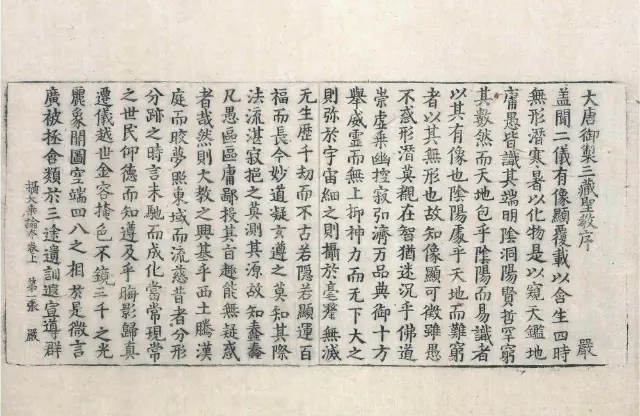 大唐御製三藏聖教序 嚴
盖聞二儀有像顯覆載以含生四時
無形潜寒暑以化物是以窺天鑑地
庸愚皆識其端明陰洞陽賢哲罕窮
其數然而天地包乎陰陽而易識者
以其有像也陰陽處乎天地而難窮
者以其無形也故知像顯可徵雖愚
不惑形潜莫覩在智猶迷況乎佛道
崇虚乗幽控寂弘濟万品典御十方
舉威靈而無上抑神力而无下大之
則弥於宇宙細之則攝於毫氂無滅
无生歴千劫而不古若隱若顯運百
福而長今妙道凝玄遵之莫知其際
法流湛寂挹之莫測其源故知蠢蠢
凡愚區區庸鄙投其百趣能無疑惑
者哉然則大教之興基乎西土騰漢
庭而皎夢照東域而流慈昔者分形
分跡之時言未馳而成化當常現常
之世民仰德而知遵及乎晦影歸真
遷儀越世金容掩色不鏡三千之光
麗象開圖空端四八之相於是微言
廣被拯含類於三途遺訓遐宣導群
攝大乗論 卷上 第二張 嚴